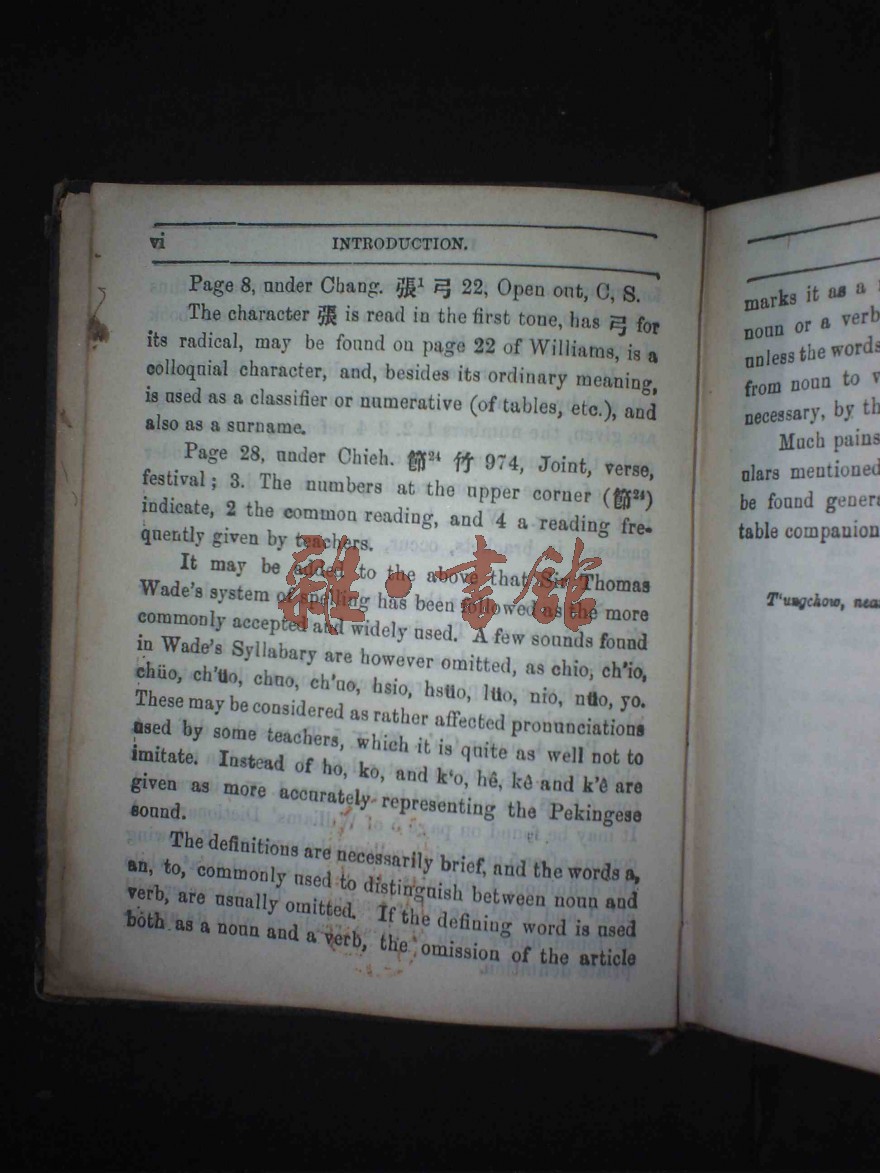 vi
INTRODUCTION.
Page 8, under Chang. 張¹ 弓 22, Open out, C, S.
The character 張 is read in the first tone, has 弓 for
its radical, may be found on page 22 of Williams, is a
colloquial character, and, besides its ordinary meaning,
is used as a classifier or numerative (of tables, etc.), and
also as a surname.
Page 28, under Chieh. 節²⁴ 竹 974, Joint, verse,
festival; 3. The numbers at the upper corner (節²⁴)
indicate, 2 the common reading, and 4 a reading fre-
quently given by teachers.
It may be added to the above that Sir Thomas
Wade's system of spelling has been followed as the more
commonly accepted and widely used. A few sounds found
in Wade's Syllabary are however omitted, as chio, ch'io,
chüo, ch'üo, chuo, ch'uo, hsio, hsüo, lüo, nio, nüo, yo.
These may be considered as rather affected pronunciations
used by some teachers, which it is quite as well not to
imitate. Instead of ho, ko, and k'o, hê, kê and k'ê are
given as more accurately representing the Pekingese
sound.
The definitions are necessarily brief, and the words a,
an, to, commonly used to distinguish between noun and
verb, are usually omitted. If the defining word is used
both as a noun and a verb, the omission of the article
marks it as a
noun or a verb
unless the words
from noun to
necessary, by
Much pains
ulars mentioned
be found
table companion
T'ungchow,
雜·書館